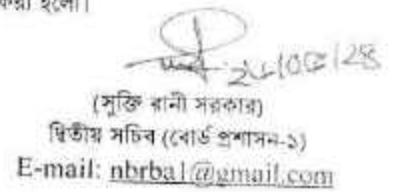 করা হলো।
(সুক্তি রানী সরকার)
দ্বিতীয় সচিব (বোর্ড প্রশাসন-১)
E-mail: nbrba1@gmail.com